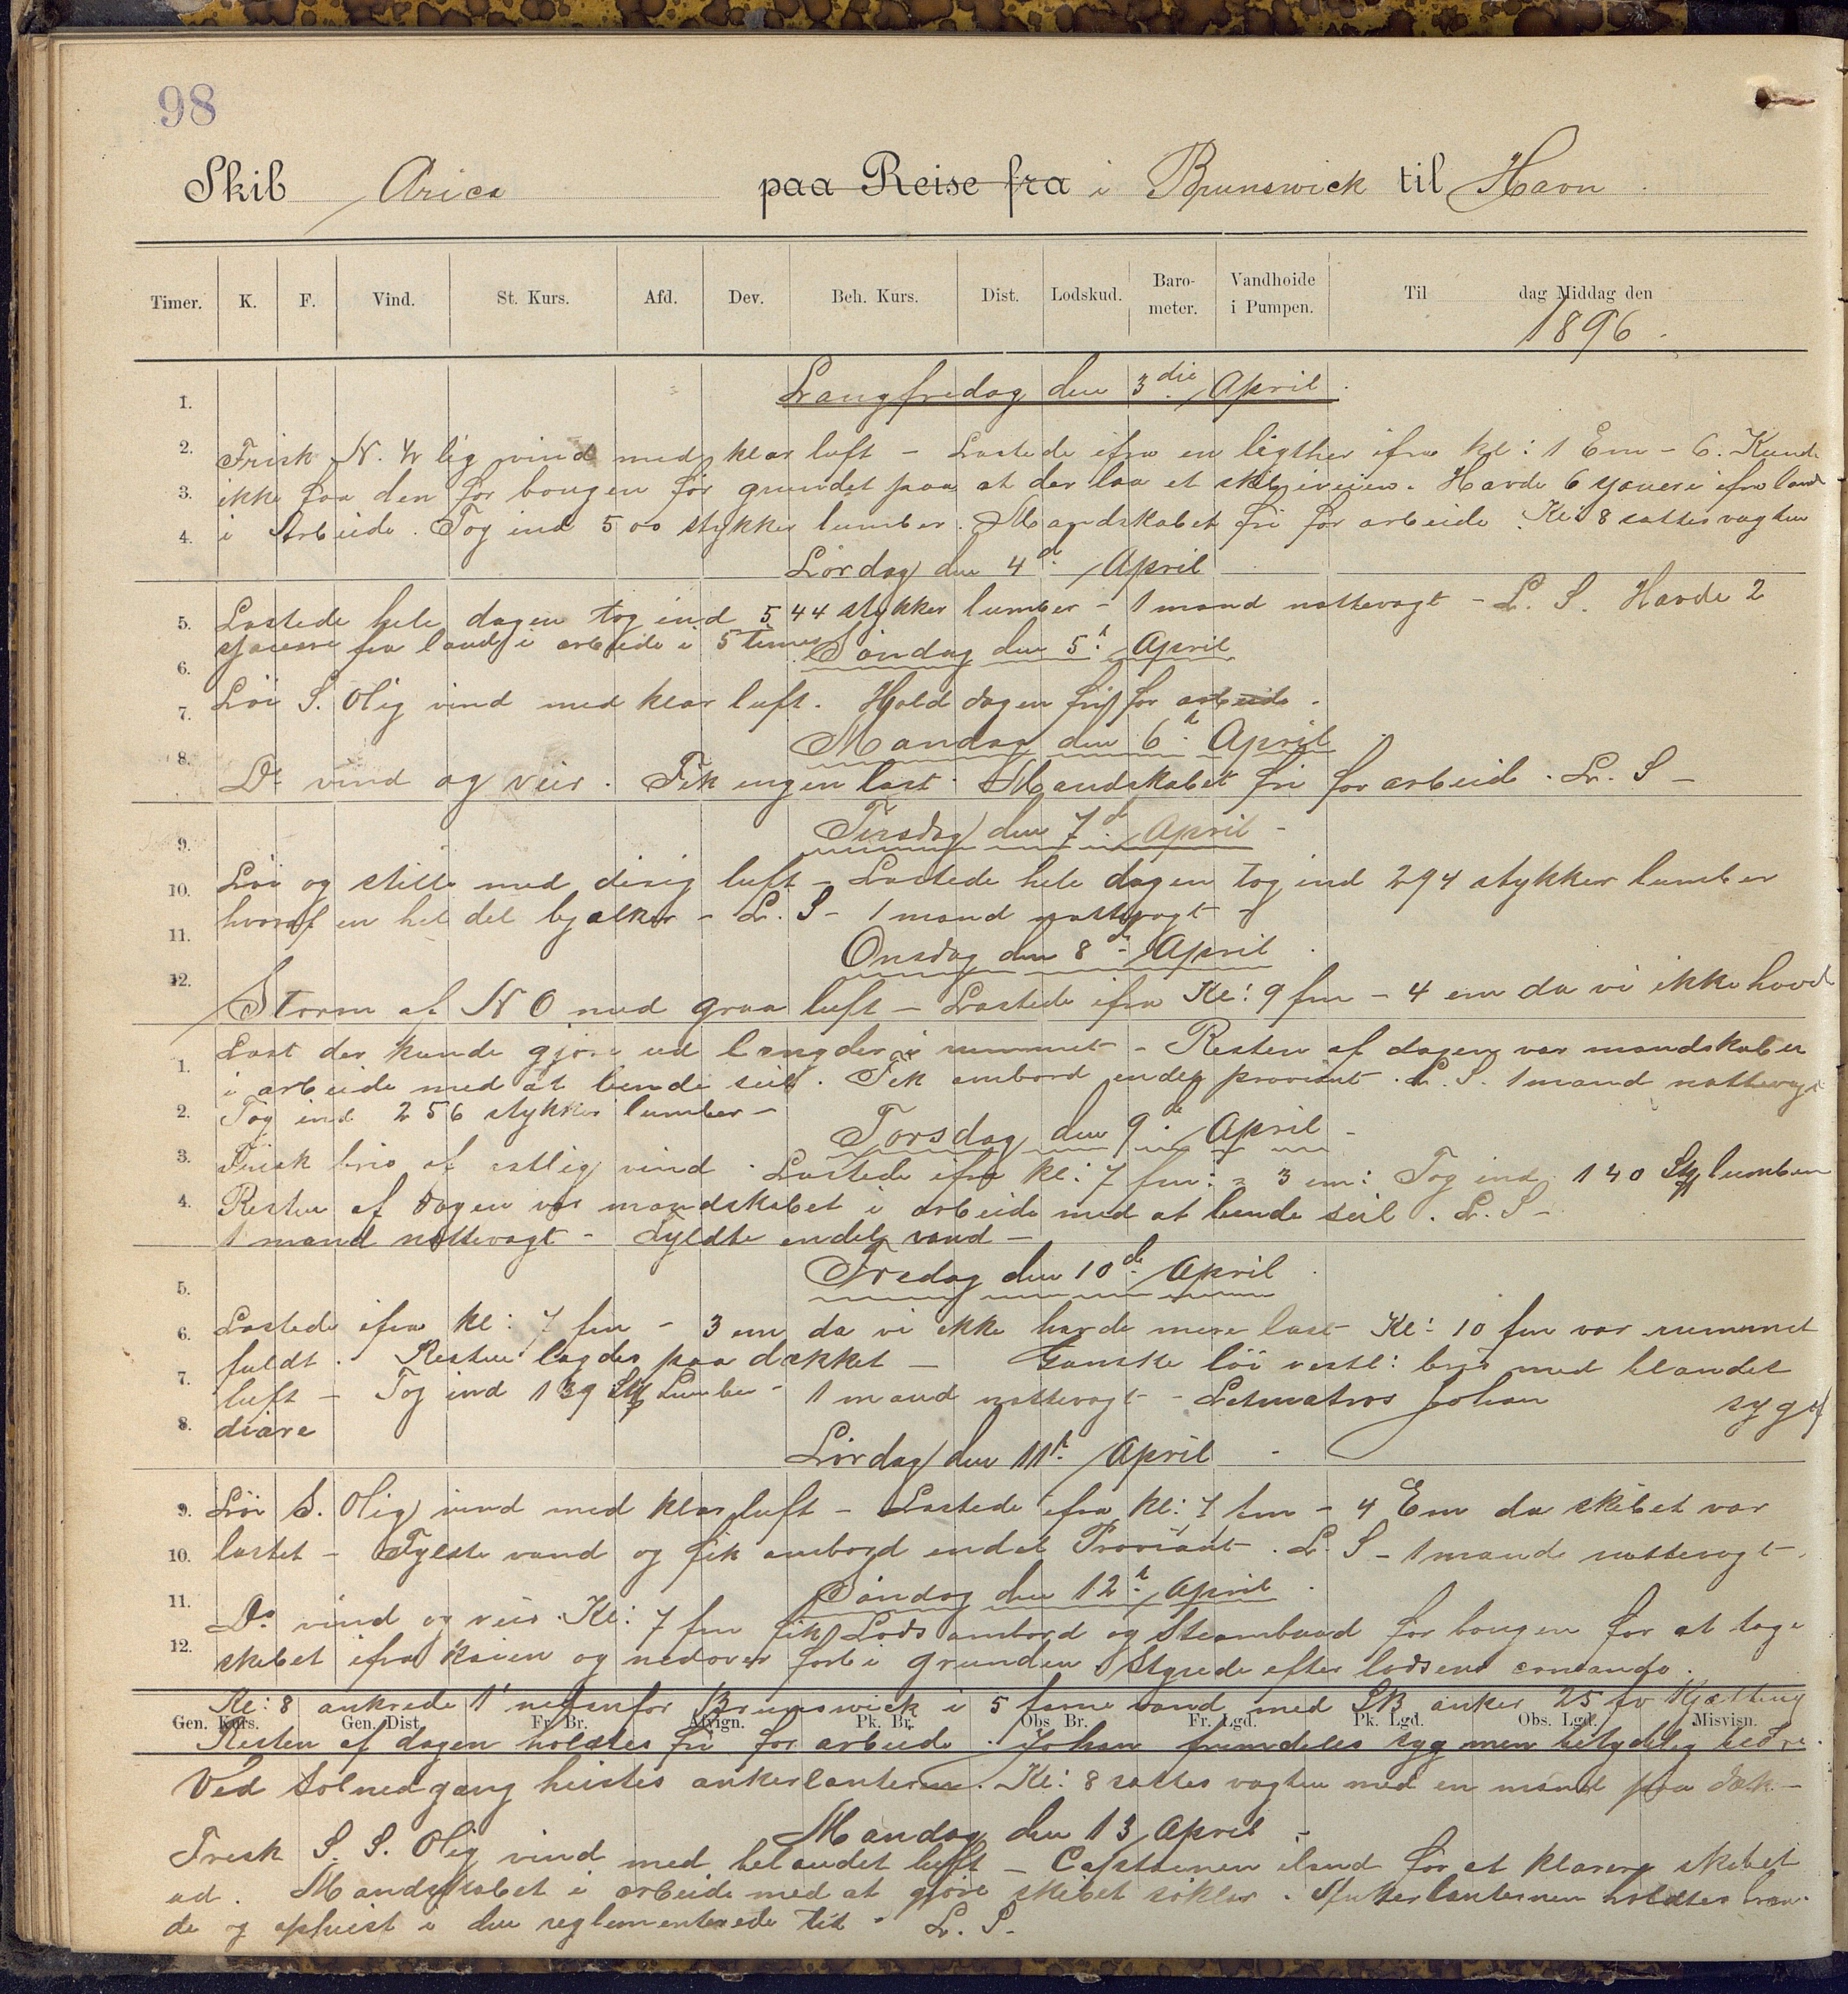 98
Skib Arica paa Reise fra i Brunswick til Havn
Timer. K. F. Vind. St. Kurs. Afd. Dev. Beh. Kurs. Dist. Lodskud. Barometer. Vandhoide i Pumpen. Til dag Middag den
1896
1. Langfredag den 3die April
2. Frisk N. V lig vind med klar luft - Lastede ifra en ligther ifra kl: 1 Em - 6. Kunde
3. ikke faa den for bougen for grundet paa at der laa et skib iveien. Havde 6 ifra land
4. i Arbeide. Tog ind 500 stykker lumber. Mandskabet fri for arbeide. Kl: 8 sattes vagten
Lørdag den 4d April
5. Lastede hele dagen tog ind 544 stykker lumber - 1 mand nattevagt - L. S. Havde 2
fra land i arbeide i 5 timer
6. Søndag den 5t April
7. Løi S. Olig vind med klar luft. Hold dagen fri for arbeide.
Mandag den 6t April
8. Do vind og veir. Fik ingen last. Mandskabet fri for arbeid. L. S -
9. Tirsdag den 7d April -
10. Løi og stille med disig luft - Lastede hele dagen tog ind 294 stykker lumber
hvoraf en hel del bjælker - L. S - 1 mand nattevagt -
11. Onsdag den 8d April
12. Storm af N O med graa luft - Lastede ifra Kl: 9 fm - 4 em da vi ikke havde
1. Last der kunde gjøre ud længder i rummet - Resten af dagen var mandskabet
i arbeide med at bende seil. Fik ombord endel proviant. L. S. 1 mand nattevagt
2. Tog ind 256 stykker lumber -
Torsdag den 9de April -
3. Frisk bris af østlig vind. Lastede ifra kl: 7 fm: - 3 em: Tog ind 140 Stk lumber
4. Resten af dagen var mandskabet i arbeide med at bende seil. L. S -
1 mand nattevagt - Fyldte endel vand -
5. Fredag den 10de April
6. Lastede ifra kl: 7 fm - 3 em da vi ikke havde mere last Kl: 10 fm var rummet
fuldt. Resten lagdes paa dækket - Ganske løi vestl: bris med blandet
7. luft - Tog ind 139 Stk Lumber - 1 mand nattevagt - Letmatros Johan syg af
8. diare
Lørdag den 11t April -
9. Løi S. Olig vind med klar luft - Lastede ifra kl: 7 fm - 4 Em da skibet var
10. lastet - Fyldte vand og fik ombord endel Proviant. L. S - 1 mand nattevagt.
Søndag den 12t April
11. Do vind og veir. Kl: 7 fm fik Lods ombord og Steambaad for bougen for at tage
12. skibet ifra kaien og nedover forbi grunden Styrede efter lodsens comando.
Kl: 8 ankrede 1' nedenfor Brunswick i 5 favne vand med SB anker 25 fv Kjætting
Gen. Kurs. Gen. Dist. Fr. Br. Afvign. Pk. Br. Obs Br. Fr. Lgd. Pk. Lgd. Obs. Lgd. Misvisn.
Resten af dagen holdtes fri for arbeide. Johan fremdeles syg men betydelig bedre.
Ved Solnedgang heistes ankerlanternen. Kl: 8 sattes vagten med en mand paa dæk -
Mandag den 13 April -
Frisk S. S. Olig vind med belandet luft - Captainen iland for at klarere skibet
ud. Mandskabet i arbeide med at gjøre skibet søklar. Ankerlanternen holdtes bræn-
de og opheist i den reglementerede tid - L. S.